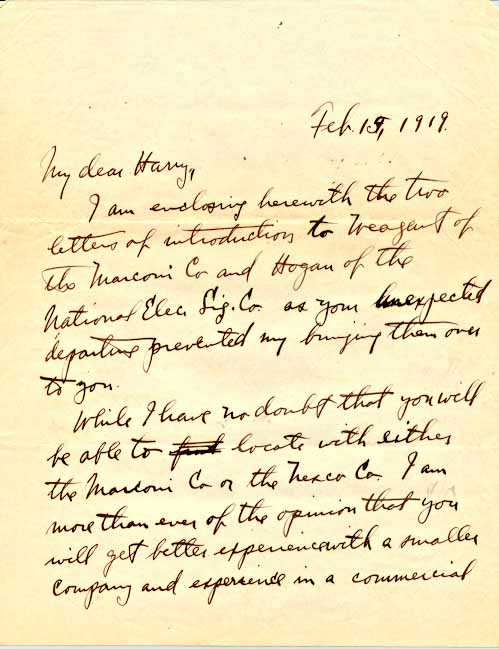 Feb. 15, 1919.
My dear Harry,
I am enclosing herewith the two
letters of introduction to Weagent of
the Marconi Co and Hogan of the
National Elec. Sig. Co. as your unexpected
departure prevented my bringing them over
to you.
While I have no doubt that you will
be able to find locate with either
the Marconi Co or the Nesco Co. I am
more than ever of the opinion that you
will get better experience with a smaller
company and experience in a commercial